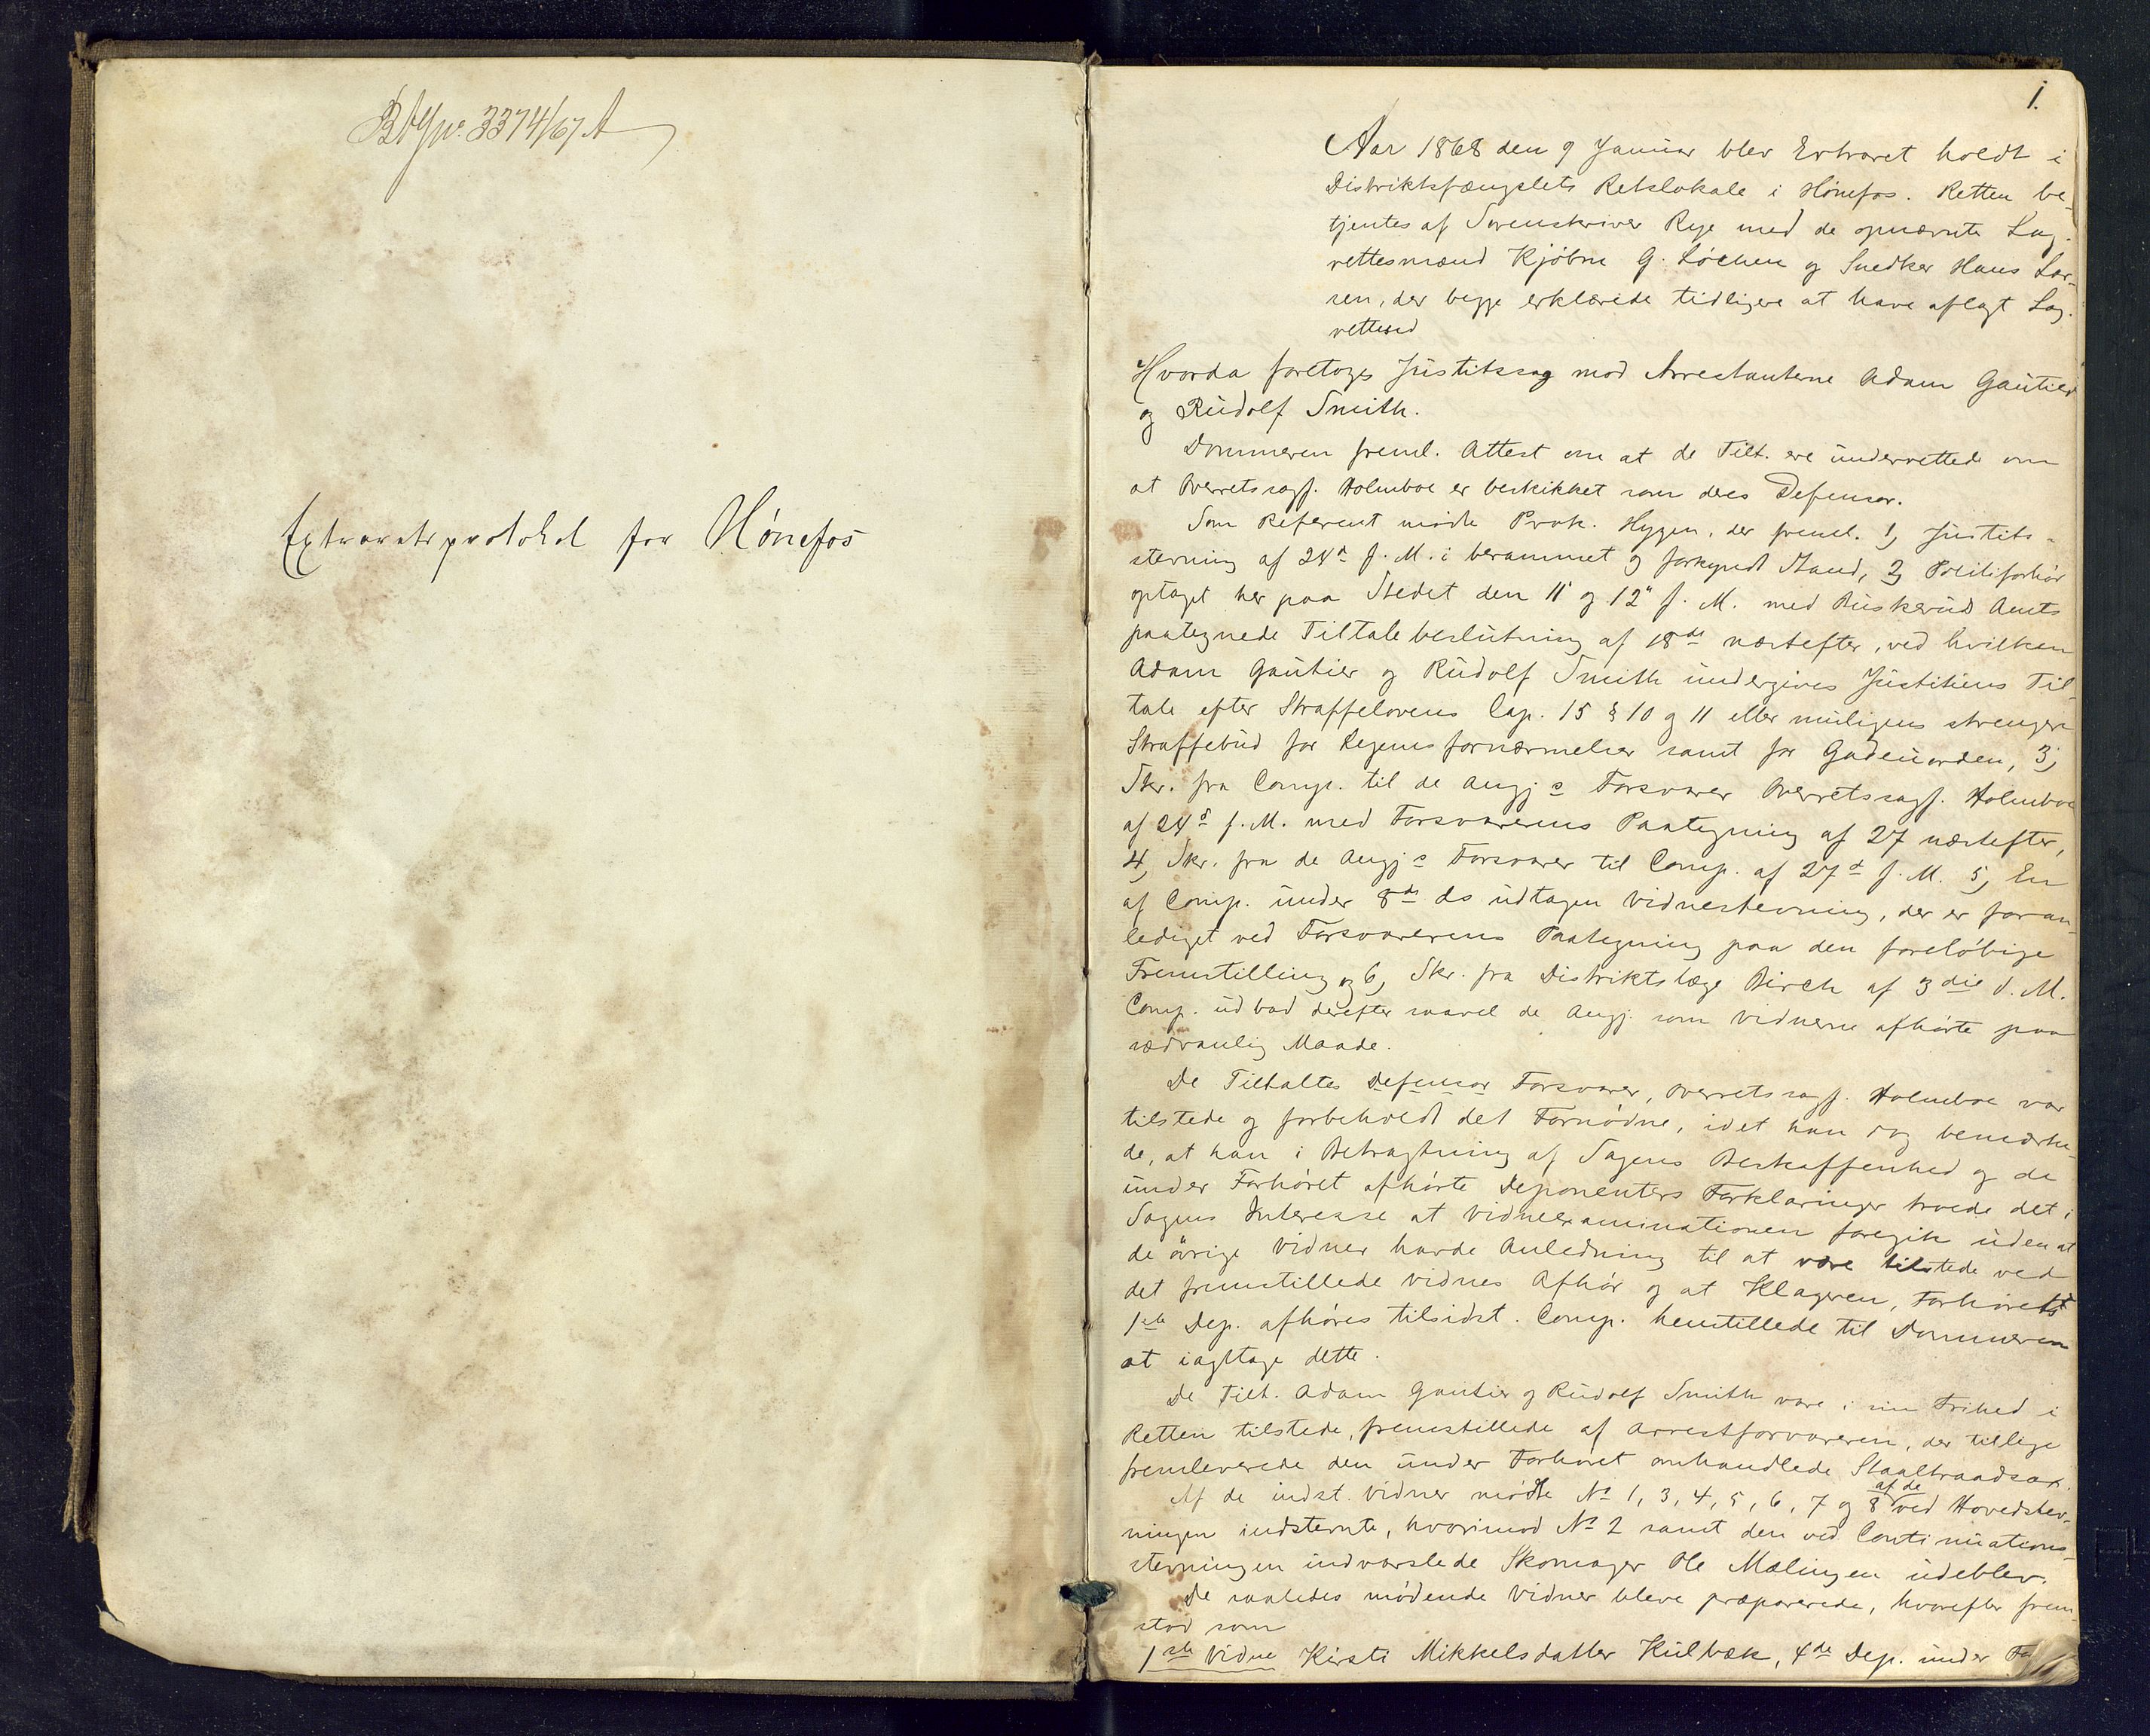 3374/67 A
Extraretsprotokol for Hönefos
1.
Aar 1868 den 9 Januar blev Extraret holdt i
Distriktsfængslets Retslokale i Hönefos. Retten be-
tjentes af Sorenskriver Rye med de opnævnte Lag-
rettesmænd Kjöbm G. Löchen og Snedker Hans Lar-
sen, der begge erklærede tidligere at have aflagt Lag-
rettesed
Hvorda foretoges Justitssag mod Arrestanterne Adam Gautier
og Rudolf Smith.
Dommeren freml. Attest om at de Tilt. ere underrettede om
at Overretssagf. Holmboe er beskikket som deres Defensor.
Som Referent mödte Prok. Hygen, der freml. 1, Justits-
stevning af 24d f. M. i berammet og forkyndt Stand, 2, Politiforhör
optaget her paa Stedet den 11 og 12 f. M. med Buskeruds Amts
paategnede Tiltalebeslutning af 18de næstefter, ved hvilken
Adam Gautier og Rudolf Smith undergives Justitiens Til-
tale efter Straffelovens Cap. 15 § 10 og 11 eller muligens strengere
Straffebud for Legemsfornærmelser samt for Gadeuorden, 3,
Skr. fra Comp. til de Angj s Forsvarer Overretssagf. Holmboe
af 24d f. M. med Forsvarerens Paategning af 27 næstefter,
4, Skr. fra de Angj s Forsvarer til Comp. af 27d f. M. 5, En
af Comp. under 8de ds udtagen Vidnestevning, der er foran-
lediget ved Forsvarerens Paategning paa den forelöbige
Fremstilling og 6, Skr. fra Distriktslæge Birch af 3die d. M.
Comp. udbad derefter saavel de Angj. som Vidnerne afhörte paa
sædvanlig Maade.
De Tiltaltes Defensor Forsvarer, Overretssagf. Holmboe var
tilstede og forbeholdt det Fornödne, idet han dog bemærke-
de, at han i Betragtning af Sagens Beskaffenhed og de
under Forhöret afhörte Deponenters Forklaringer troede det i
Sagens Interesse at Vidneexaminationen foregik uden at
de övrige Vidner havde Anledning til at være tilstede ved
det fremstillede Vidnes Afhör og at Klageren, Forhörets
1ste Dep. afhöres tilsidst. Comp. henstillede til Dommeren
at iagttage dette.
De Tilt. Adam Gautier og Rudolf Smith vare i sin Frihed i
Retten tilstede, fremstillede af Arrestforvareren, der tillige
fremleverede den under Forhöret omhandlede Staaltraadsax.
Af de indst. Vidner mödte No 1, 3, 4, 5, 6, 7 og 8 af de ved Hovedstev-
ningen indstevnte, hvorimod No 2 samt den ved Continuations-
stevningen indvarslede Skomager Ole Mælingen udeblev.
De saaledes mödende Vidner bleve præparerede, hvorefter frem-
stod som
1ste Vidne Kirsti Mikkelsdatter Kulbæk, 4de Dep. under